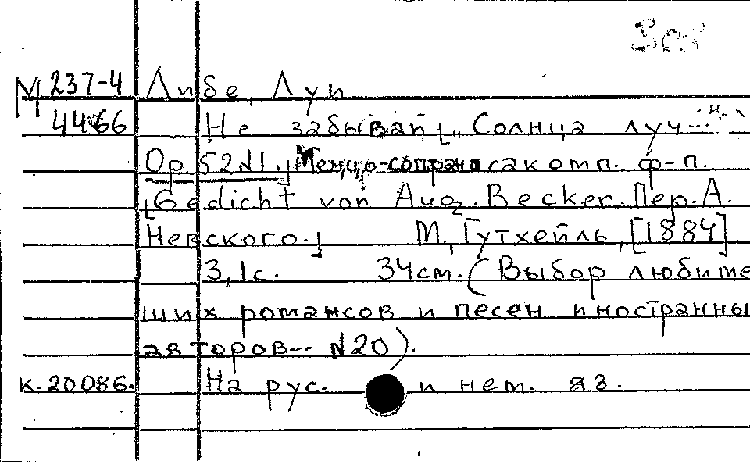 М 237-4 Либе, Луи
4466 Не забывай [,, Солнца луч...
Op. 52 N1.] Меццо-сопрано с акомп. ф-п.
[Gedicht von Aug. Becker. Пер. А.
Невского.] М., Гутхейль, [1884]
3, 1с. 34см. (Выбор любите
ших романсов и песен иностранны
авторов... N20).
к. 20086. На рус. и нем. яз.